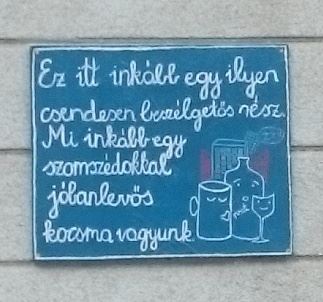 Ez itt inkább egy ilyen
csendesen beszélgetős rész.
Mi inkább egy
szomszédokkal
jóbanlevős
kocsma vagyunk.